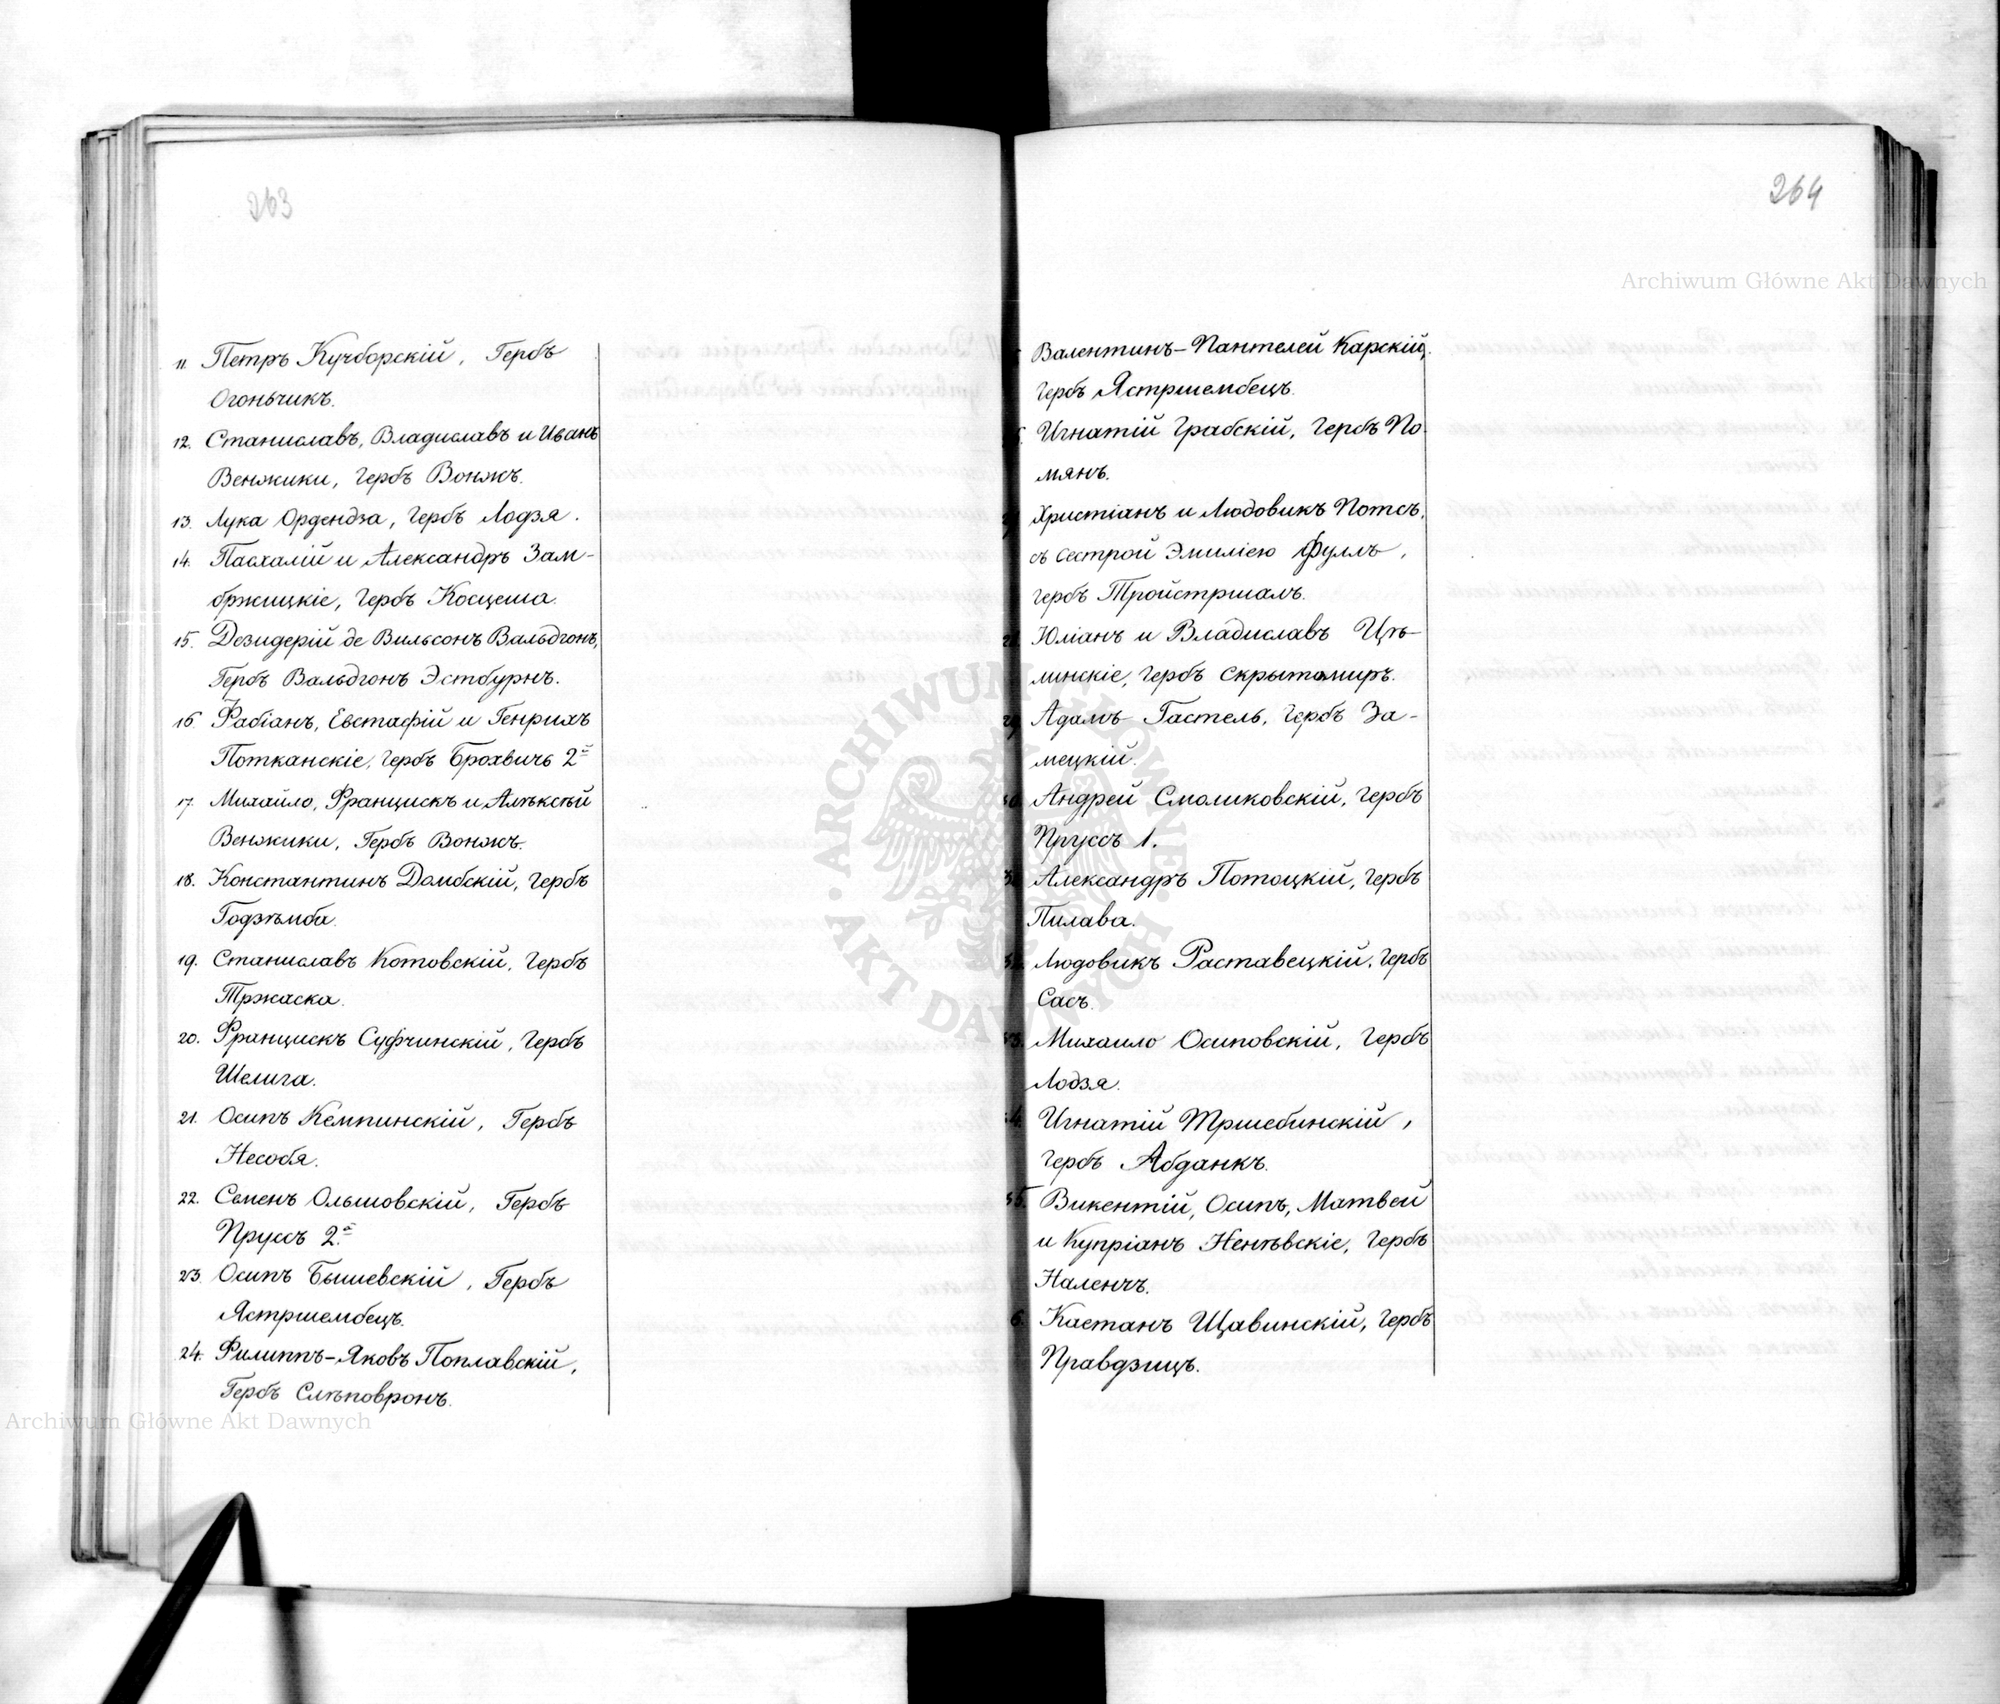 263
11. Петръ Кучборскій, Гербъ
Огоньчикъ.
12. Станиславъ, Владиславъ и Иванъ
Венжики, Гербъ Вонжъ.
13. Лука Ордендза, Гербъ Лодзя.
14. Пасхалій и Александръ Зам-
бржицкіе, Гербъ Косцеша.
15. Дезидерій де Вильсонъ Вальдгонъ,
Гербъ Вальдгонъ Эстбурнъ.
16 Фабіанъ, Евстафій и Генрихъ
Потканскіе, Гербъ Брохвичъ 2й
17. Михайло, Францискъ и Алѣксѣй
Венжики, Гербъ Вонжъ.
18. Константинъ Домбскій, Гербъ
Годзѣмба.
19. Станиславъ Котовскій, Гербъ
Тржаска.
20. Францискъ Суфчинскій, Гербъ
Шелига.
21. Осипъ Кемпинскій, Гербъ
Несобя.
22. Семенъ Ольшовскій, Гербъ
Пруссъ 2й
23. Осипъ Бышевскій, Гербъ
Ястршембецъ.
24. Филиппъ-Яковъ Поплавскій,
Гербъ Слѣповронъ.
264
Валентинъ-Пантелей Карскій,
Гербъ Ястршембецъ.
Игнатій Грабскій, Гербъ По-
мянъ.
Христіанъ и Людовикъ Потсъ,
съ сестрой Эмиліею Фуллъ,
Гербъ Тройстршалъ.
Юліанъ и Владиславъ Цѣ-
линскіе, Гербъ Скрытомиръ.
Адамъ Гастель, Гербъ За-
мецкій.
Андрей Смоликовскій, Гербъ
Пруссъ 1.
Александръ Потоцкій, Гербъ
Пилава.
Людовикъ Раставецкій, Гербъ
Сасъ.
Михаило Осиповскій, Гербъ
Лодзя.
Игнатій Тршебинскій,
Гербъ Абданкъ.
35. Викентій, Осипъ, Матвей
и Купріанъ Ненѣвскіе, Гербъ
Наленчъ.
6. Каетанъ Щавинскій, Гербъ
Правдзицъ.
Archiwum Główne Akt Dawnych
Archiwum Główne Akt Dawnych
ARCHIWUM GŁÓWNE AKT DAWNYCH